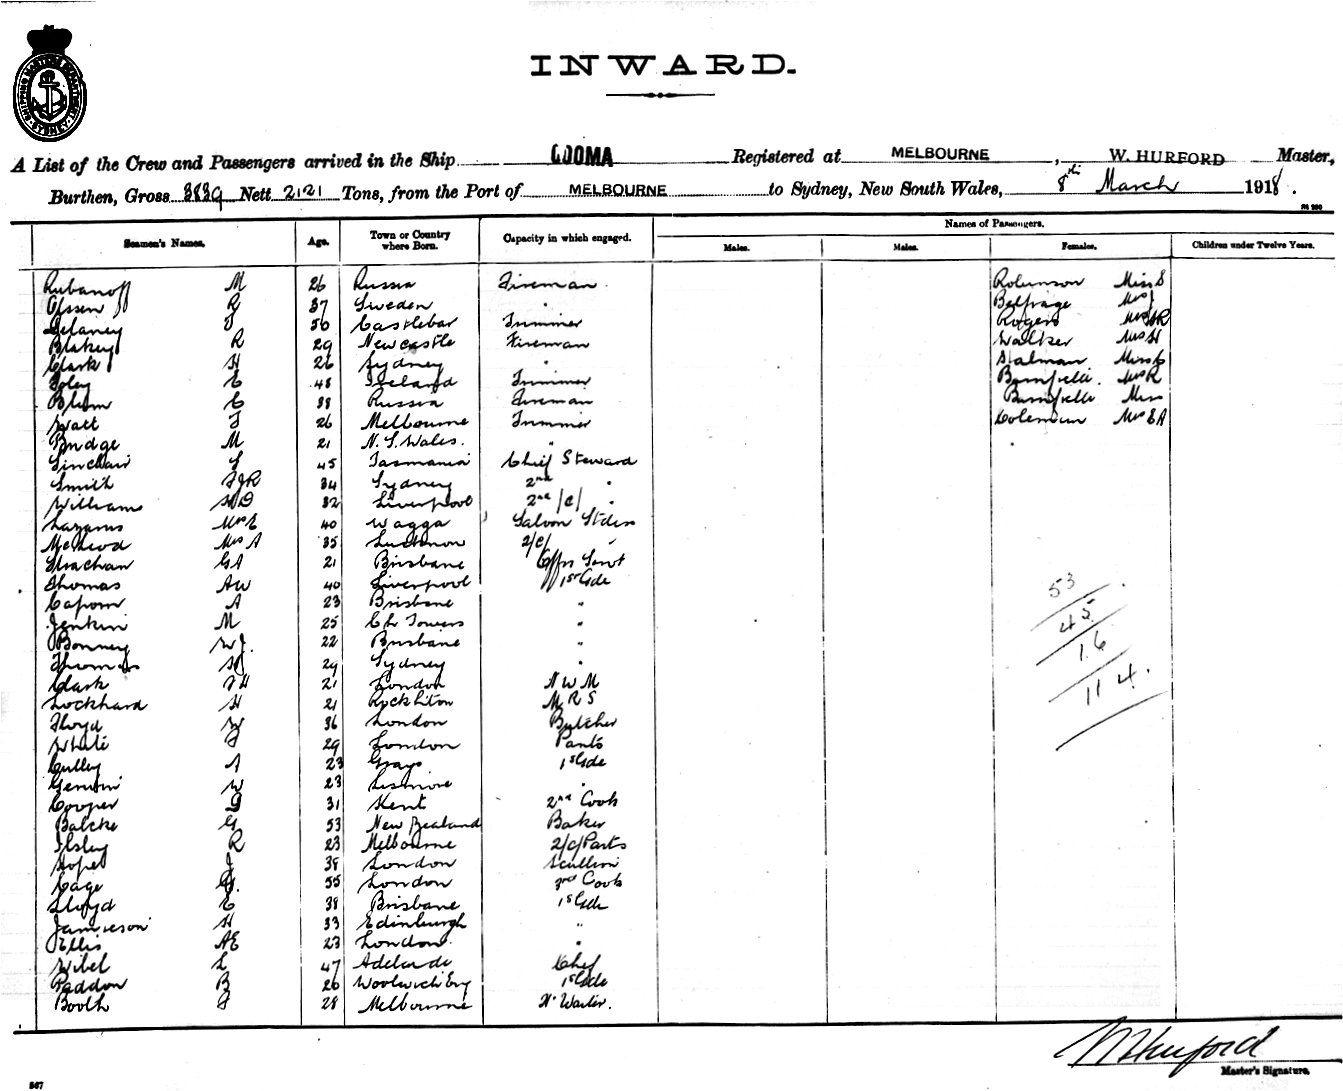 SHIPPING MASTERS DEPARTMENT SYDNEY
INWARD.
A List of the Crew and Passengers arrived in the Ship COOMA Registered at MELBOURNE, W. HURFORD Master,
Burthen, Gross 3839 Nett 2121 Tons, from the Port of MELBOURNE to Sydney, New South Wales, 8th March 1918.
Names of Passengers.
Seamen's Names. Age. Town or Country where Born. Capacity in which engaged. Males. Males. Females. Children under Twelve Years.
Rubanoff M 26 Russia Fireman Robinson Miss S
Olssen G 37 Sweden " Belfrage Mrs J
Delaney T 56 Castlebar Trimmer Rogers
Blakey R 29 Newcastle Fireman Walker Mrs H
Clark H 26 Sydney " Stalman Miss C
Foley C 48 Ireland Trimmer Mrs R
Blum C 38 Russia Fireman Miss
Watt T 26 Melbourne Trimmer Coleman Mrs E A
Bridge M 21 N. S. Wales. "
Sinclair S 45 Tasmania Chief Steward
Smith FJR 34 Sydney 2nd "
Williams HD 32 Liverpool 2nd /C/ "
Lazarus Mrs E 40 Wagga Saloon Stdss
McLeod Mrs A 35 Lucknow 2/C/ "
Strachan GA 21 Brisbane Offrs Servt
Thomas AW 40 Liverpool 1st Gde
A 23 Brisbane "
Jenkin M 25 Ch Towers "
Bonney WJ. 22 Brisbane "
Thomas HJ 29 Sydney "
Clark FH 21 London N W M
Lockhard H 21 Rockhton M R S
Floyd W 36 London Butcher
White F 29 London Pants
Culley A 23 Grays 1st Gde
W 23 Lismore "
Cooper D 31 Kent 2nd Cook
Balcke G 53 New Zealand Baker
Ilsley R 23 Melbourne 2/C/Pants
Hope J 38 London Scullion
Cage G. 55 London 3rd Cook
Lloyd E 38 Brisbane 1st Gde
Jamieson H 33 Edinburgh "
Ellis AE 23 London. "
Wibel L 47 Adelaide Chef
Paddon B 26 Woolwich Eng 1st Gde
Booth F 28 Melbourne N. Waiter.
53
45
16
114.
W Hurford
Master's Signature.
567